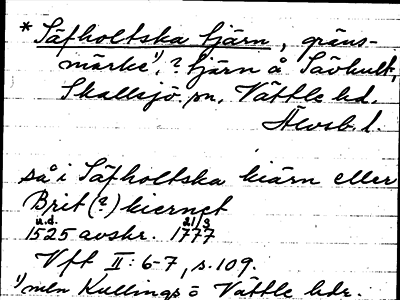 * Säfholtska tjärn, gräns-
märke¹⁾, ? tjärn å Sävhult,
Skallsjö sn, Vättle hd.
Älvsb. l.
så i Säfholtska kiärn eller
Brit (?) kiernet
u.d. 21/3
1525 avskr. 1777
Vft II: 6-7, s. 109.
¹⁾ men Kullings o Vättle hdr.